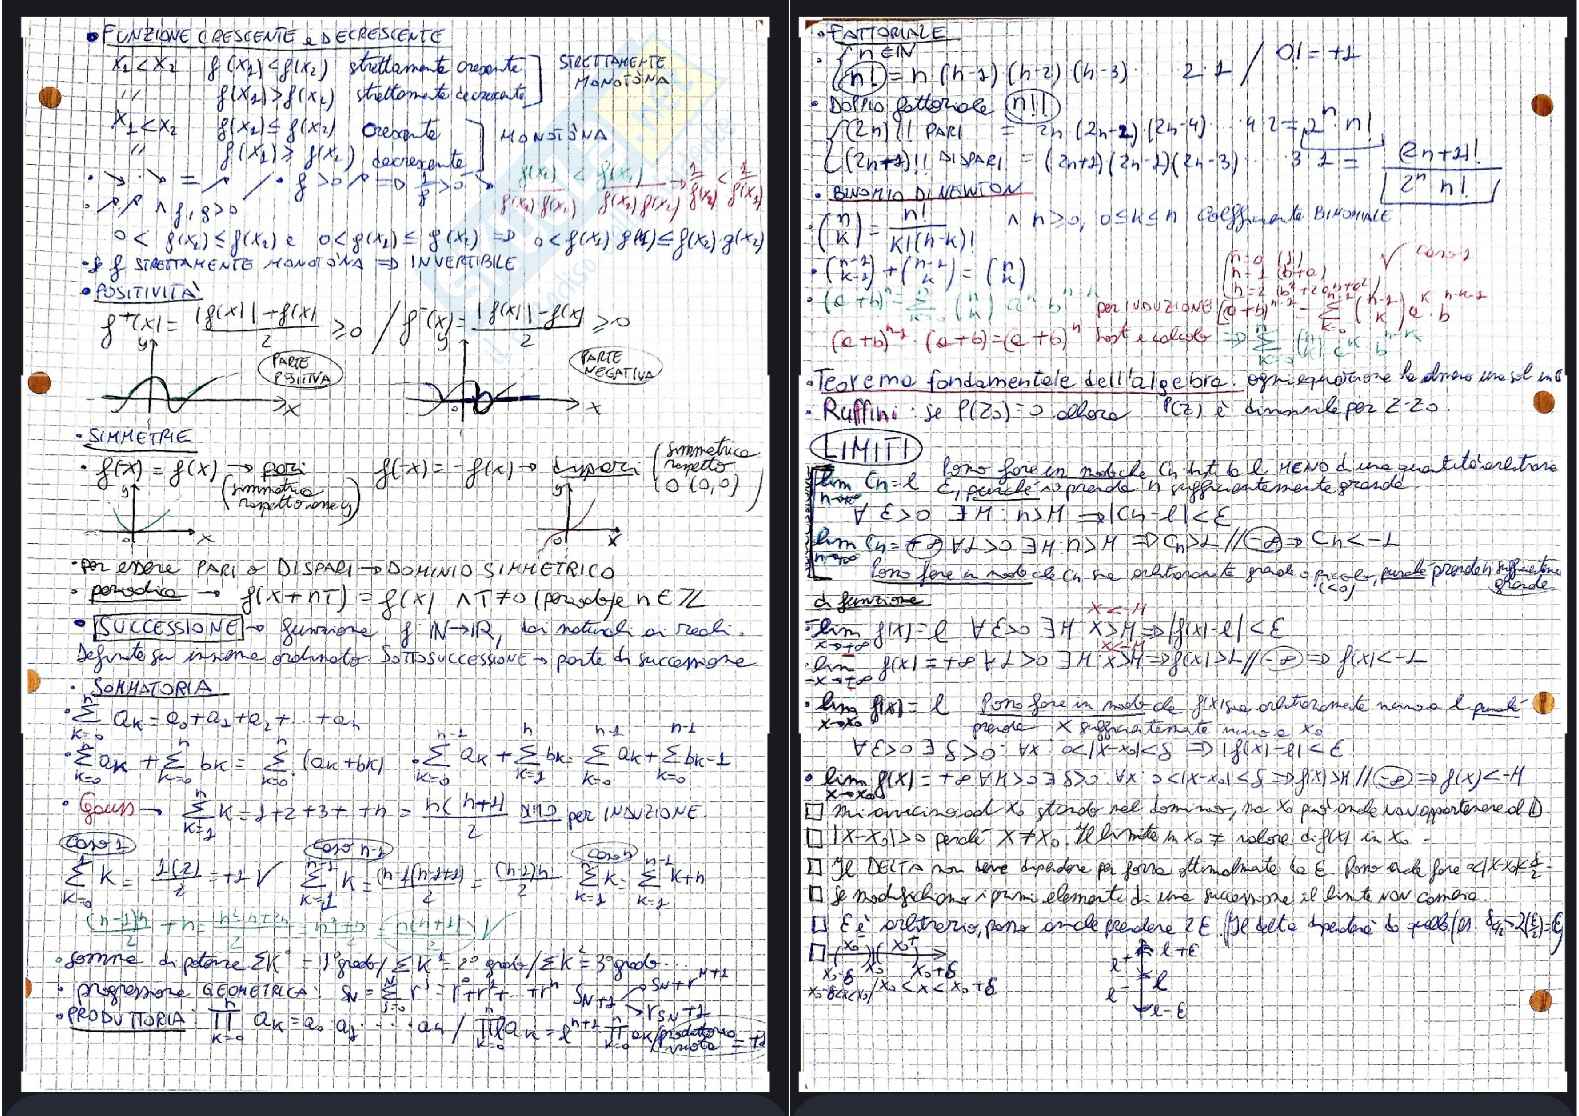 • FUNZIONE CRESCENTE e DECRESCENTE
x1 < x2 f(x1) < f(x2) strettamente crescente
" f(x1) > f(x2) strettamente decrescente
STRETTAMENTE MONOTÒNA
x1 < x2 f(x1) ≤ f(x2) crescente
" f(x1) ≥ f(x2) decrescente
MONOTÒNA
∧ f, g > 0
0 < f(x1) ≤ f(x2) e 0 < g(x1) ≤ g(x2) ⇒ 0 < f(x1) g(x1) ≤ f(x2) g(x2)
• se f STRETTAMENTE MONOTÒNA ⇒ INVERTIBILE
• POSITIVITÀ
f⁺(x) = |f(x)| + f(x) / 2 ≥ 0 / f⁻(x) = |f(x)| - f(x) / 2 ≥ 0
y x PARTE POSITIVA
y x PARTE NEGATIVA
• SIMMETRIE
• f(-x) = f(x) → pari (simmetria rispetto asse y)
f(-x) = -f(x) → dispari (simmetrica rispetto 0 (0,0))
y 0 x
y 0 x
• per essere PARI o DISPARI → DOMINIO SIMMETRICO
• periodica → f(x+nT) = f(x) ∧ T ≠ 0 (periodo) e n ∈ Z
• SUCCESSIONE → funzione f: N → R, dai naturali ai reali.
Definita su insieme ordinato. SOTTOSUCCESSIONE → parte di successione
• SOMMATORIA
• Σ(k=0, n) ak = a0 + a1 + a2 + ... + an
• Σ(k=0, n) ak + Σ(k=0, n) bk = Σ(k=0, n) (ak + bk) • Σ(k=0, n-1) ak + Σ(k=1, n) bk = Σ(k=0, n-1) ak + Σ(k=0, n-1) bk+1
• Gauss → Σ(k=1, n) k = 1+2+3+ +n = n(n+1)/2 DIM per INDUZIONE
caso 1 caso n-1 caso n
Σ k = 1(2)/2 = +1 √ Σ(k=1, n-1) k = (n-1)(n-1+1)/2 = (n-1)n/2 Σ(k=1, n) k = Σ(k=1, n-1) k + n
• somma di potenze Σk⁰ = 1° grado / Σk¹ = 2° grado / Σk² = 3° grado ...
• progressione GEOMETRICA: SN = Σ r^j = r⁰ + r¹ + ... + r^N SN+1 SN + r^N+1
r SN + 1
• PRODUTTORIA: Π(k=0, n) ak = a0 · a1 · ... · an
• FATTORIALE
n ∈ N
n! = n (n-1) (n-2) (n-3) 2·1 / 0! = +1
• Doppio fattoriale n!!
(2n)!! PARI = 2n (2n-2) (2n-4) ... 4·2 = 2ⁿ n!
(2n+1)!! DISPARI = (2n+1) (2n-1) (2n-3) ... 3·1 = (2n+1)! / 2ⁿ n!
• BINOMIO DI NEWTON
(n k) = n! / k!(n-k)! ∧ n ≥ 0, 0 ≤ k ≤ n coefficiente BINOMIALE
• (n-1 k-1) + (n-1 k) = (n k)
per INDUZIONE
(a+b)ⁿ⁻¹ · (a+b) = (a+b)ⁿ
• Teorema fondamentale dell'algebra: ogni equazione ha almeno una sol in C
• Ruffini: se P(z0) = 0 allora P(z) è divisibile per z-z0.
LIMITI
lim n→∞ Cn = l Posso fare in modo che Cn disti da l MENO di una quantità arbitraria
ε, purché io prenda n sufficientemente grande
∀ ε > 0 ∃ M : n > M ⇒ |Cn - l| < ε
lim n→∞ Cn = +∞ ∀ L > 0 ∃ M : n > M ⇒ Cn > L // -∞ ⇒ Cn < -L
Posso fare in modo che Cn sia arbitrariamente grande o piccolo (<0), purché prenda n sufficientemente grande
di funzione
x < -M
• lim x→+∞ f(x) = l ∀ ε > 0 ∃ M : x > M ⇒ |f(x) - l| < ε
x < -M
• lim x→+∞ f(x) = +∞ ∀ L > 0 ∃ M : x > M ⇒ f(x) > L // -∞ ⇒ f(x) < -L
• lim x→x0 f(x) = l Posso fare in modo che f(x) sia arbitrariamente vicino a l purché
prenda x sufficientemente vicino a x0
∀ ε > 0 ∃ δ > 0 : ∀x : 0 < |x-x0| < δ ⇒ |f(x) - l| < ε
• lim x→x0 f(x) = +∞ ∀ M > 0 ∃ δ > 0 : ∀x : 0 < |x-x0| < δ ⇒ f(x) > M // -∞ ⇒ f(x) < -M
□ mi avvicino ad x0 stando nel dominio, ma x0 può anche non appartenere al D
□ |x-x0| > 0 perché x ≠ x0. Il limite in x0 ≠ valore di f(x) in x0.
□ Il DELTA non deve dipendere per forza ottimalmente da ε. Posso anche fare
□ Se modifichiamo i primi elementi di una successione il limite NON cambia.
□ ε è arbitrario, posso anche prendere 2ε.
□ x0⁻ x0⁺
x0-δ x0 x0+δ
x0-δ<x<x0 / x0 < x < x0+δ
l+ε
l⁺ l
l⁻
l-ε